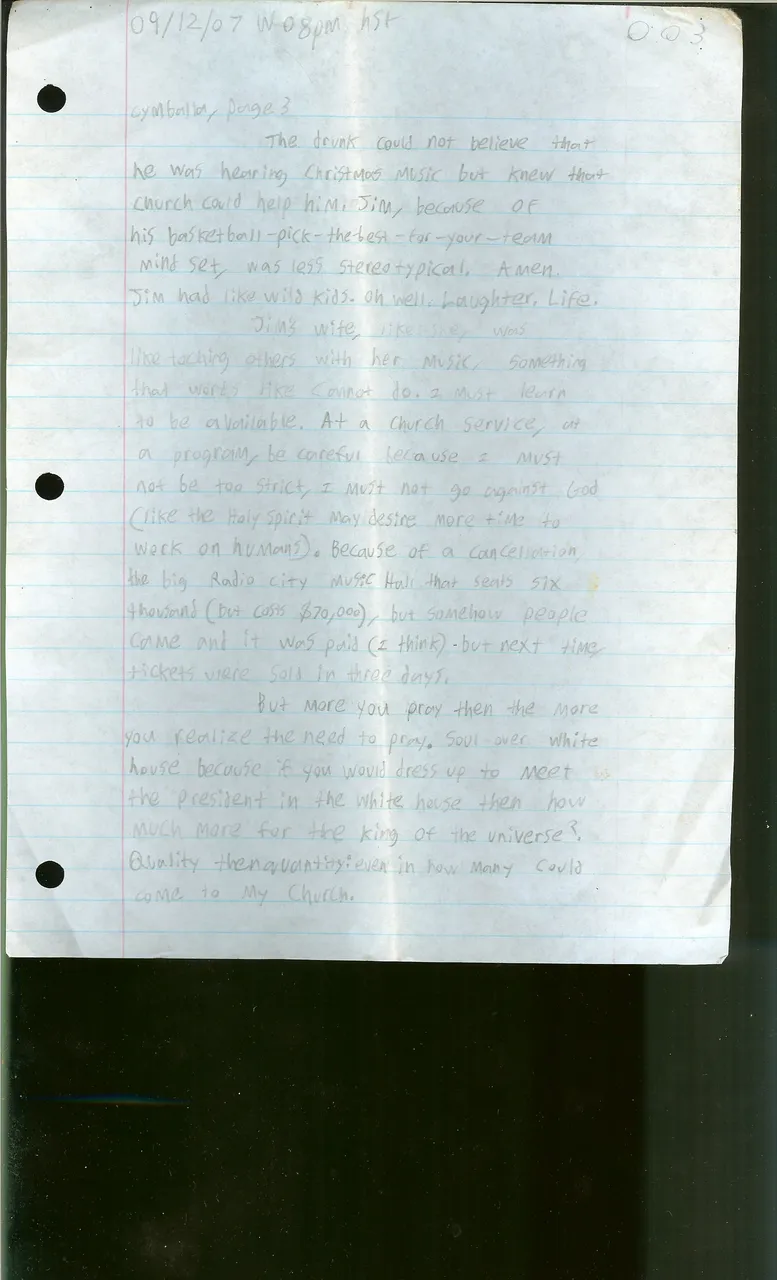 09/12/07 W 08pm hst
003
cymballa, page 3
The drunk could not believe that
he was hearing Christmas Music but knew that
church could help him. Jim, because of
his basketball-pick-the-best-for-your-team
mind set, was less stereotypical. Amen.
Jim had like wild kids. Oh well. Laughter. Life.
Jim's wife, like she, was
like toching others with her music, something
that words like cannot do. I must learn
to be available. At a church service, at
a program, be careful because I must
not be too strict, I must not go against God
(like the Holy Spirit may desire more time to
work on humans). Because of a cancellation,
the big Radio city music Hall that seats six
thousand (but costs $70,000), but somehow people
came and it was paid (I think). but next time,
tickets were sold in three days.
But more you pray then the more
you realize the need to pray. Soul over white
house because if you would dress up to meet
the president in the white house then how
much more for the king of the universe?.
Quality then quantity: even in how many could
come to my church.